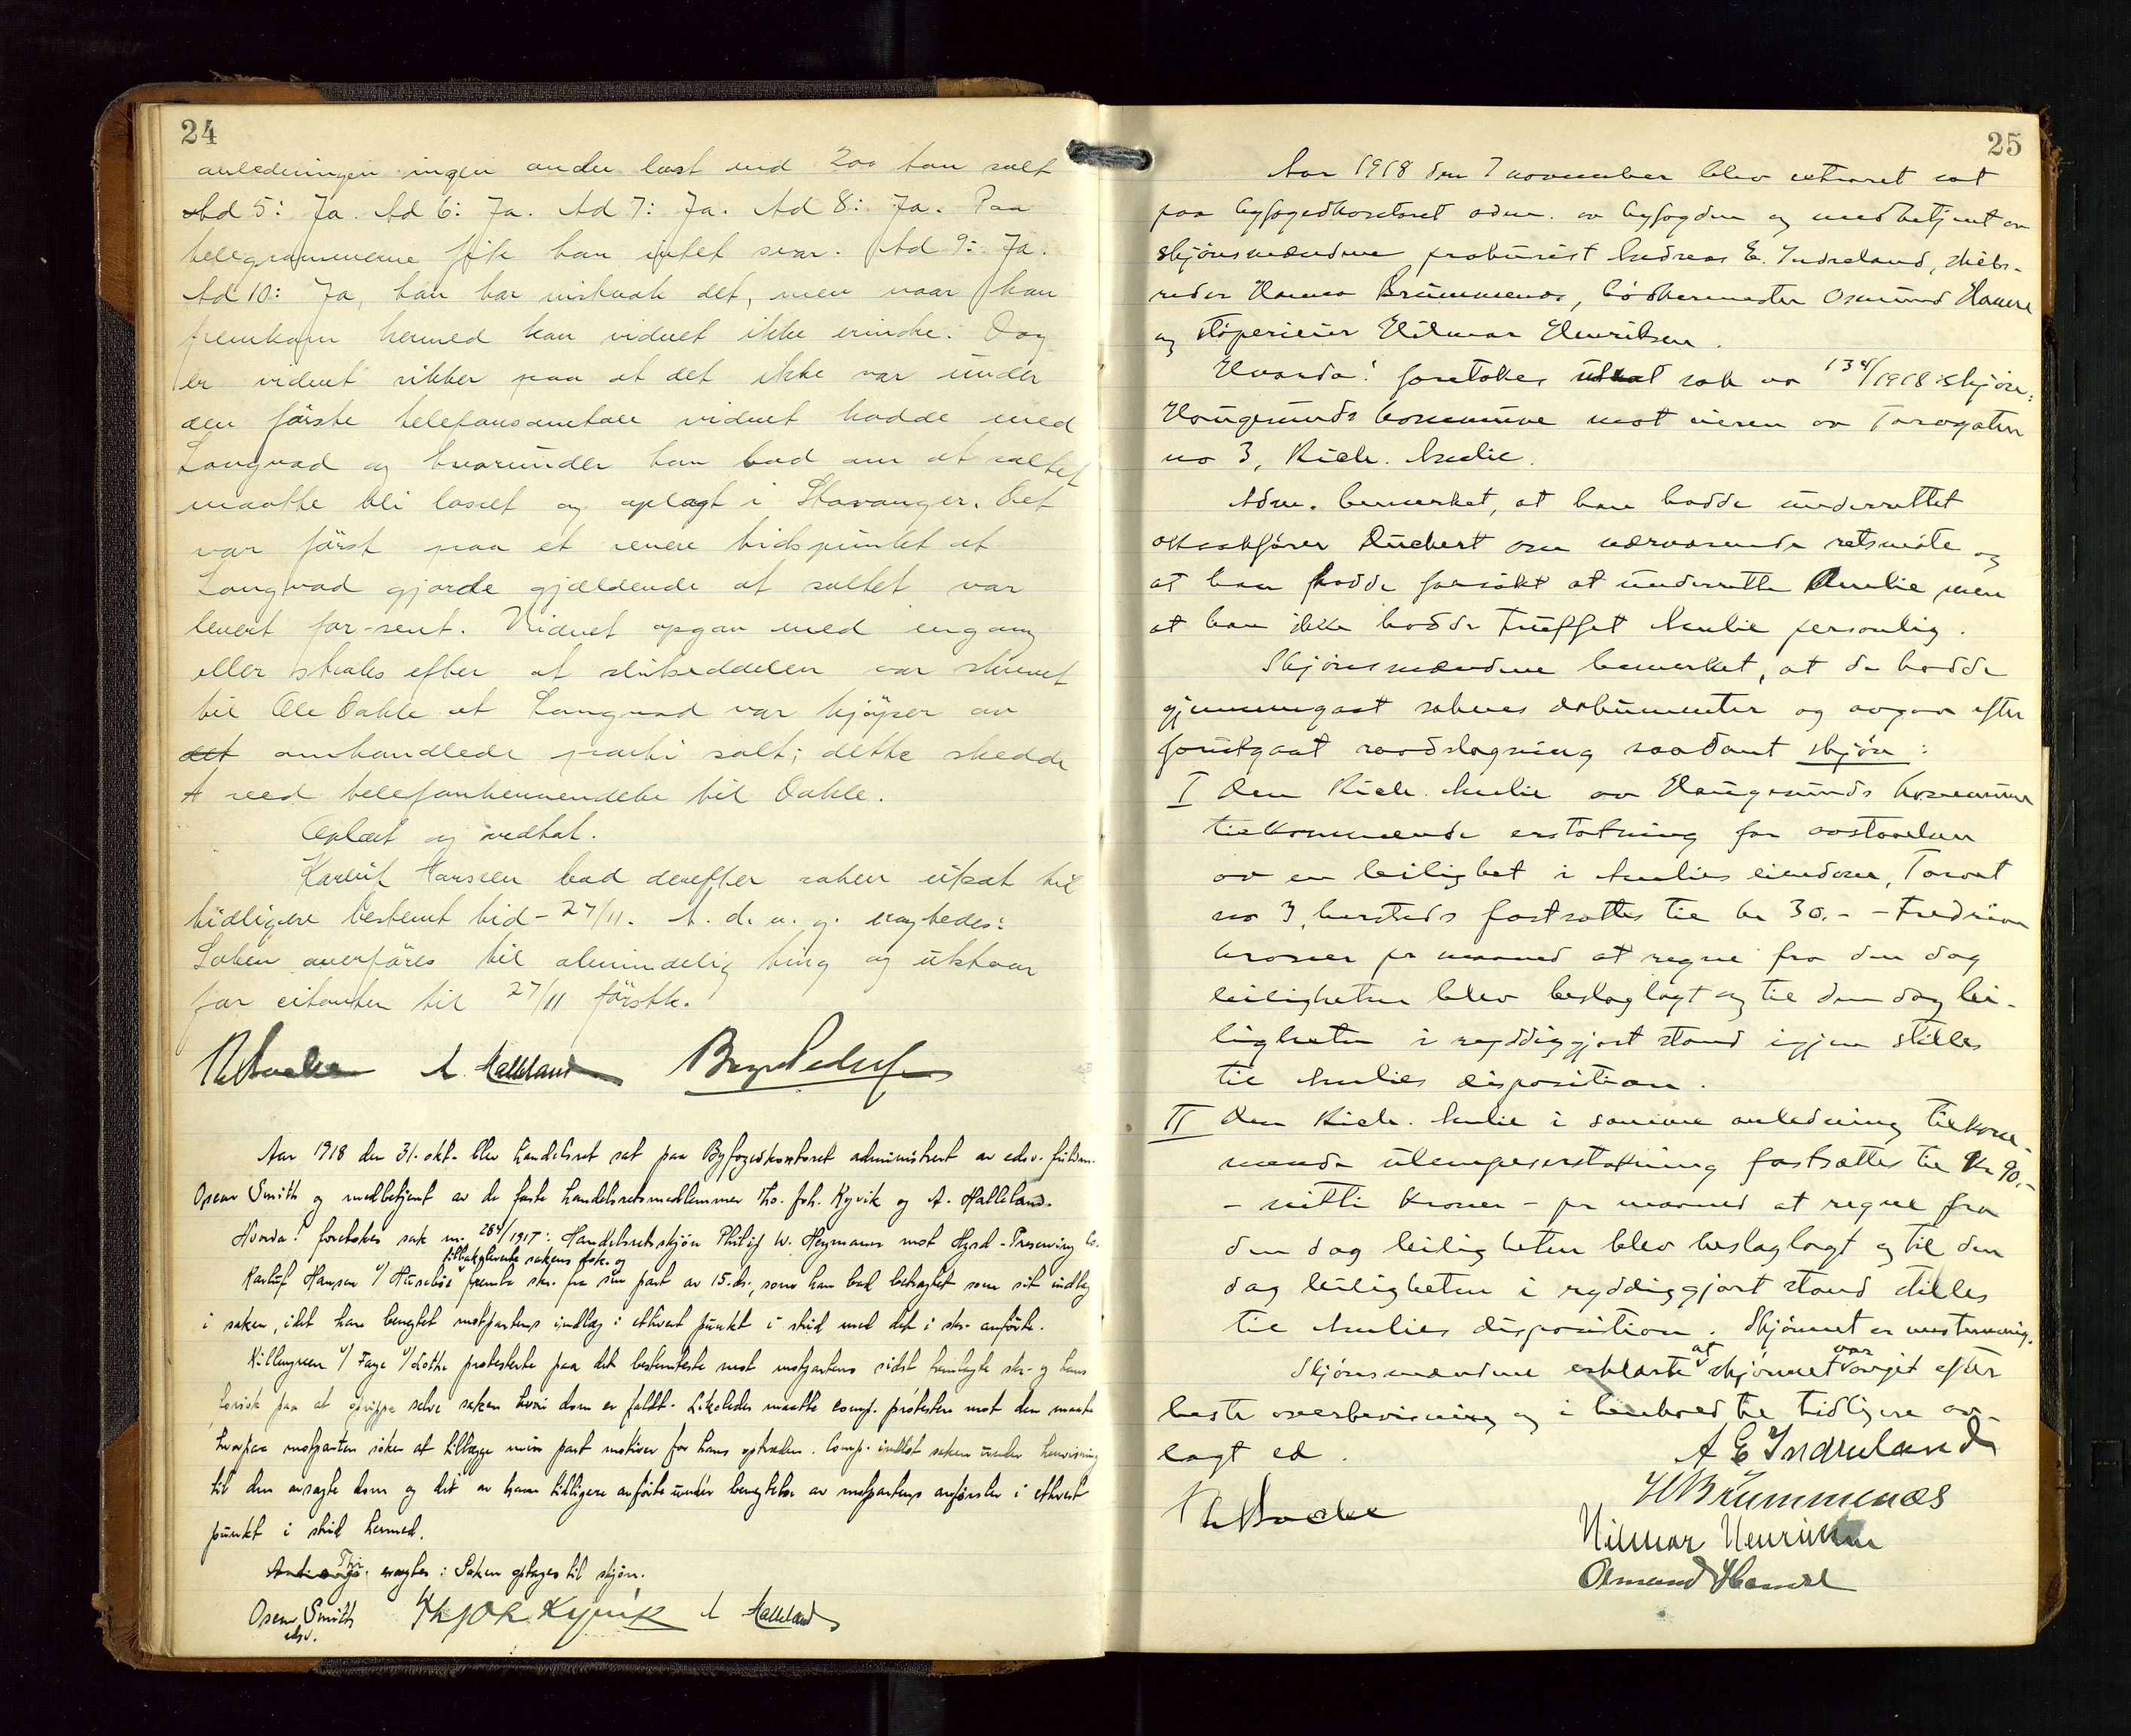 24
anledningen ingen anden last end 200 ton salt
Ad 5: Ja. Ad 6: Ja. Ad 7: Ja. Ad 8: Ja. Paa
telegrammerne fik han intet svar. Ad 9: Ja.
Ad 10: Ja, han har mistanke det, men naar han
fremkom hermed kan vidnet ikke erindre. Dog
er vidnet sikker paa at det ikke var under
den första telefonsamtale vidnet hadde med
Langvad og hvorunder han bad om at saltet
maatte bli losset og oplagt i Stavanger. Det
var först paa et senere tidspunkt at
Langvad gjorde gjældende at saltet var
levert for sent. Vidnet opgav med engang
eller straks efter at slutseddelen var skrevet
til Ole Dahle at Langvad var kjöper av
det omhandlede parti salt; dette skedde
ved telefonhenvendelse til Dahle.
Oplæst og vedtat.
Karluf Hanssen bad derefter saken utsat til
tidligere bestemt tid - 27/11. A. d. u. g. eragtedes:
Saken överföres til almindelig ting og utstaar
for citanten til 27/11 förstk.
A. Halleland
Aar 1918 den 31. okt. blev handelsret sat paa Byfogedkontoret administrert av edsv. fuldm.
Oscar Smith og medbetjent av de faste handelsretsmedlemmer Th. Joh. Kyvik og A. Halleland.
Hvorda: foretokes sak nr. 284/1917: Handelsretsskjön Philip W. Heymann mot Hgsd - Preserving Co.
tilbakeleverte sakens dok. og
Karluf Hansen f/ Huseböe fremla skr. fra sin part av 15. ds., som han bad betragtet som sit indlæg
i saken, idet han benegtet motpartens indlæg i ethvert punkt i strid med det i skr. anförte.
Killengreen f/ Faye f/ Lothe protesterte paa det bestemteste mot motpartens sidst fremlagte skr. og hans
forsök paa at oprippe selve saken hvori dom er faldt. Likeledes maatte comp. protestere mot den maate
hvorpaa motparten söker at tillægge min part motiver for hans optræden. Comp. indlot saken under henvisning
til den avsagte dom og det av ham tidligere anförte under benegtelse av motpartens anförsler i ethvert
punkt i strid hermed.
eragtes: Saken optages til skjön.
Oscar Smith Th Joh Kyvik A Halleland
edsv.
25
Aar 1918 den 7 november blev extraret sat
paa byfogedkontoret adm. av byfogden og medbetjent av
skjönsmændene prokurist Andreas E. Indreland, skibs-
reder Hannes Brummenæs, bödkermester Osmund Hamre
og stöperieier Hilmar Henriksen.
Hvorda: foretokes sak no 134/1918: skjön:
Haugesunds kommune mot eieren av Torvgaten
no 3, Rich. Amlie.
Adm. bemerket, at han hadde underrettet
o.r.sakförer Duckert om nærværende retsmöte og
at han hadde forsökt at underrette Amlie men
at han ikke hadde truffet Amlie personlig.
Skjönsmændene bemerket, at de hadde
gjennemgaat sakens dokumenter og avgav efter
forutgaat raadslagning saadant skjön:
I Den Rich. Amlie av Haugesunds kommune
tilkommende erstatning for avstaaelsen
av en leilighet i Amlies eiendom, Torvet
no 3, hersteds fastsættes til kr 30.- - tredive
kroner pr maaned at regne fra den dag
leiligheten blev beslaglagt og til den dag lei-
ligheten i ryddiggjort stand igjen stilles
til Amlies disposition.
II Den Rich. Amlie i samme anledning tilkom-
mende ulempeserstatning fastsættes til kr 90.-
- nitti kroner - pr maaned at regne fra
den dag leiligheten blev beslaglagt og til den
dag leiligheten i ryddiggjort stand stilles
til Amlies disposition. Skjönnet er enstemmig.
Skjönsmændene erklærte at skjönnet var avgit efter
beste overbevisning og i henhold til tidligere av-
lagt ed.
A E Indreland
H Brummenæs
Hilmar Henriksen
Osmund Hamre